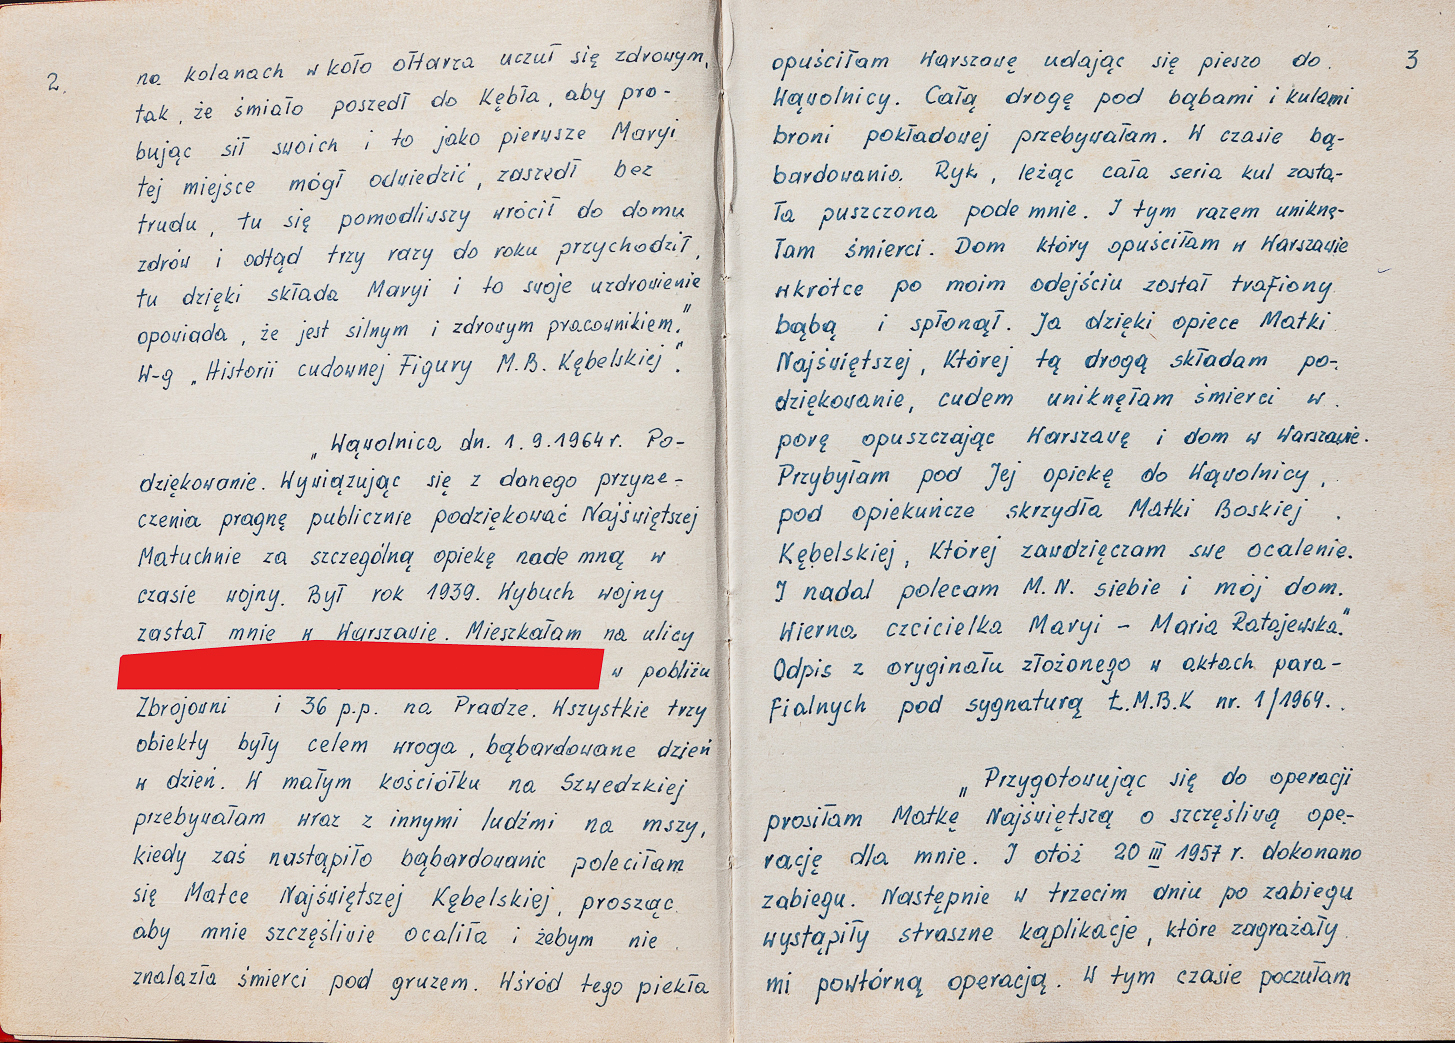 2.
na kolanach w koło ołtarza uczuł się zdrowym,
tak, że śmiało poszedł do Kębła, aby pro-
bując sił swoich i to jako pierwsze Maryi
tej miejsce mógł odwiedzić, zaszedł bez
trudu, tu się pomodliwszy wrócił do domu
zdrów i odtąd trzy razy do roku przychodził,
tu dzięki składa Maryi i to swoje uzdrowienie
opowiada, że jest silnym i zdrowym pracownikiem."
W-g „Historii cudownej Figury M.B. Kębelskiej".
„Wąwolnica dn. 1.9.1964 r. Po-
dziękowanie. Wywiązując się z danego przyrze-
czenia pragnę publicznie podziękować Najświętszej
Matuchnie za szczególną opiekę nade mną w
czasie wojny. Był rok 1939. Wybuch wojny
zastał mnie w Warszawie. Mieszkałam na ulicy
w pobliżu
Zbrojowni i 36 p.p. na Pradze. Wszystkie trzy
obiekty były celem wroga, bąbardowane dzień
w dzień. W małym kościółku na Szwedzkiej
przebywałam wraz z innymi ludźmi na mszy,
kiedy zaś nastąpiło bąbardowanie poleciłam
się Matce Najświętszej Kębelskiej, prosząc
aby mnie szczęśliwie ocaliła i żebym nie
znalazła śmierci pod gruzem. Wśród tego piekła
3
opuściłam Warszawę udając się pieszo do
Wąwolnicy. Całą drogę pod bąbami i kulami
broni pokładowej przebywałam. W czasie bą-
bardowania Ryk, leżąc cała seria kul zosta-
ła puszczona pode mnie. I tym razem uniknę-
łam śmierci. Dom który opuściłam w Warszawie
wkrótce po moim odejściu został trafiony
bąbą i spłonął. Ja dzięki opiece Matki
Najświętszej, Której tą drogą składam po-
dziękowanie, cudem uniknęłam śmierci w
porę opuszczając Warszawę i dom w Warszawie.
Przybyłam pod Jej opiekę do Wąwolnicy,
pod opiekuńcze skrzydła Matki Boskiej
Kębelskiej, Której zawdzięczam swe ocalenie.
I nadal polecam M.N. siebie i mój dom.
Wierna czcicielka Maryi – Maria Ratajewska."
Odpis z oryginału złożonego w aktach para-
fialnych pod sygnaturą Ł.M.B.K nr. 1/1964.
„Przygotowując się do operacji
prosiłam Matkę Najświętszą o szczęśliwą ope-
rację dla mnie. I otóż 20 III 1957 r. dokonano
zabiegu. Następnie w trzecim dniu po zabiegu
wystąpiły straszne kąplikacje, które zagrażały
mi powtórną operacją. W tym czasie poczułam